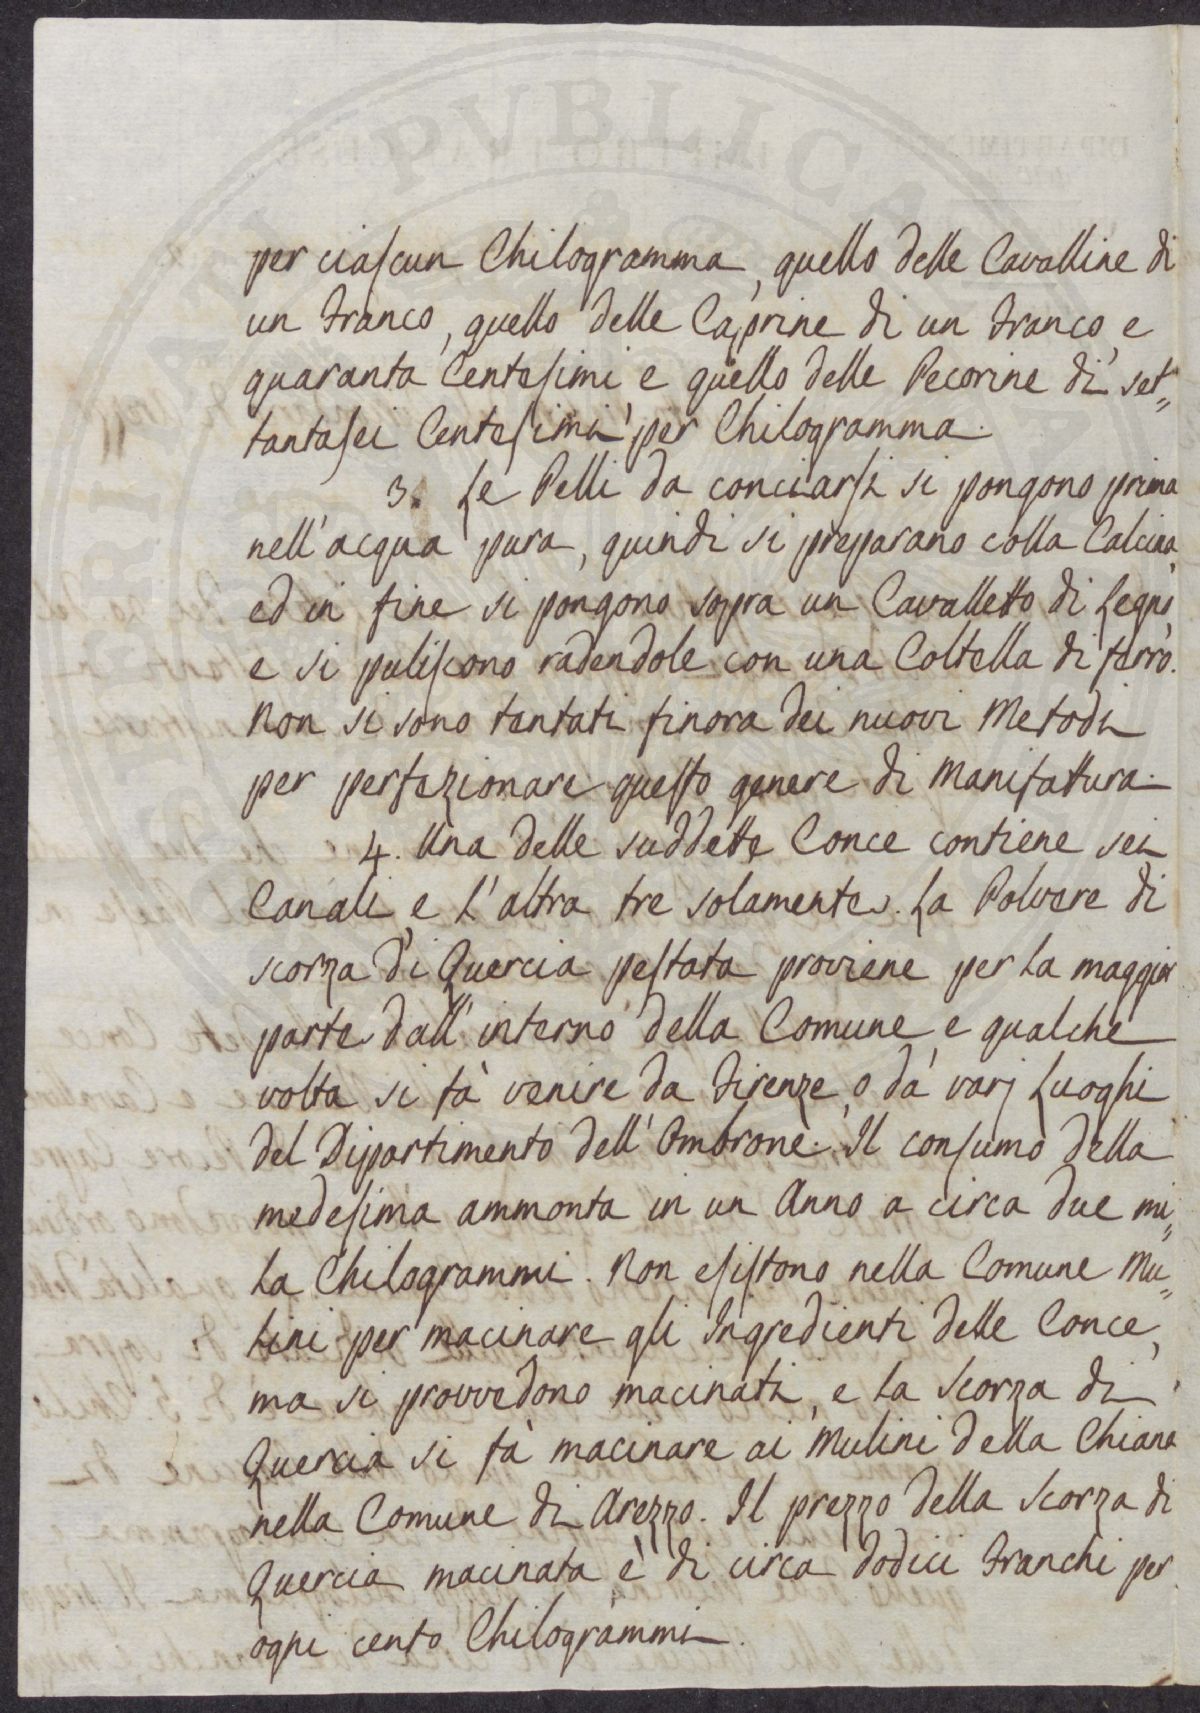 per ciascun Chilogramma, quello delle Cavalline di
un Franco, quello delle Caprine di un Franco, e
quaranta Centesimi, e quello delle Pecorine di set=
tantasei Centesimi per Chilogramma.
3. Le Pelli da conciarsi si pongono prima
nell'acqua pura, quindi si preparano colla Calcina,
ed in fine si pongono sopra un Cavalletto di Legno,
e si puliscono radendole con una Coltella di ferro.
Non si sono tentati finora dei nuovi Metodi
per perfezionare questo genere di Manifattura.
4. Una delle suddette Conce contiene sei
Canali, e l'altra tre solamente. La Polvere di
scorza di Quercia pestata proviene per la maggior
parte dall'interno della Comune, e qualche
volta si fà venire da Firenze, o da varj Luoghi
del Dipartimento dell'Ombrone. Il consumo della
medesima ammonta in un Anno a circa due mi=
la Chilogrammi. Non esistono nella Comune Mu=
lini per macinare gli Ingredienti delle Conce,
ma si provvedono macinati, e la Scorza di
Quercia si fà macinare ai Mulini della Chiana
nella Comune di Arezzo. Il prezzo della Scorza di
Quercia macinata è di circa dodici Franchi per
ogni cento Chilogrammi.